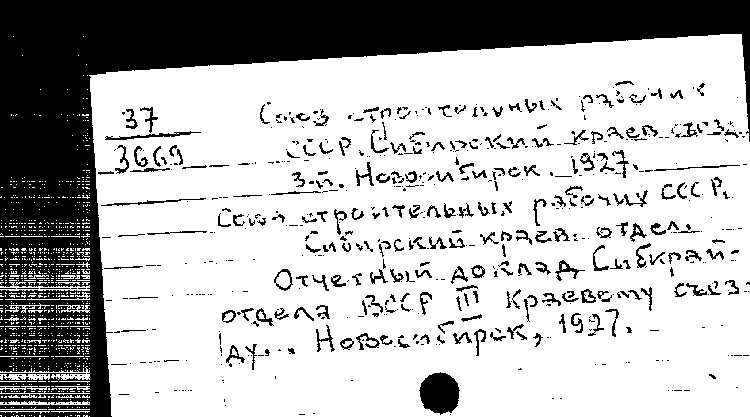 37
3669
Союз строительных рабочих
СССР. Сибирский краев. съезд.
3-й. Новосибирск. 1927.
Союз строительных рабочих СССР.
Сибирский краев. отдел.
Отчетный доклад Сибкрай-
отдела ВССР III Краевому съез-
ду... Новосибирск, 1927.